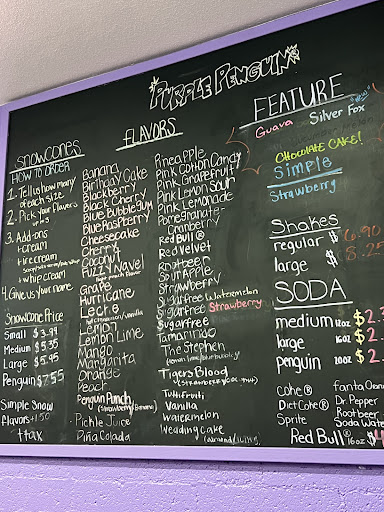 PURPLE PENGUIN
SNOWCONES
HOW TO ORDER
1. Tell us how many of each size
2. Pick your flavors
3. Add-ons
+cream
+ice cream
+whip cream
4. Give us your name
Snowcone Price
Small $3.99
Medium $5.35
Large $5.95
Penguin $7.55
Simple Snow
Flavors +1.50
+tax
FLAVORS
Banana
Birthday Cake
Blackberry
Black Cherry
Blue Bubble Gum
Blue Raspberry
Cheesecake
Cherry
Coconut
Fuzzy Navel
Grape
Hurricane
Lect.8
Lemon
Lemon Lime
Mango
Margarita
Orange
Peach
Penguin Punch
(Strawberry/Banana)
Pickle Juice
Piña Colada
Pineapple
Pink Cotton Candy
Pink Grapefruit
Pink Lemon Sour
Pink Lemonade
Pomegranate-
Cranberry
Red Bull®
Red Velvet
Rootbeer
Sour Apple
Strawberry
Sugarfree Watermelon
Sugarfree Strawberry
Sugarfree
Tamarindo
The Stephen
Tigers Blood
(Strawberry/Coconut)
Tutti Fruiti
Vanilla
Watermelon
Wedding Cake
FEATURE
Guava
Silver Fox
CHOCOLATE CAKE!
SIMPLE
Strawberry
Shakes
regular $6.90
large $8.25
SODA
medium 12oz $2.
large 16oz $2.
penguin 20oz $2.
Coke®
Diet Coke®
Sprite
fanta
Dr. Pepper
Rootbeer
Soda Wate
Red Bull® 16oz $4